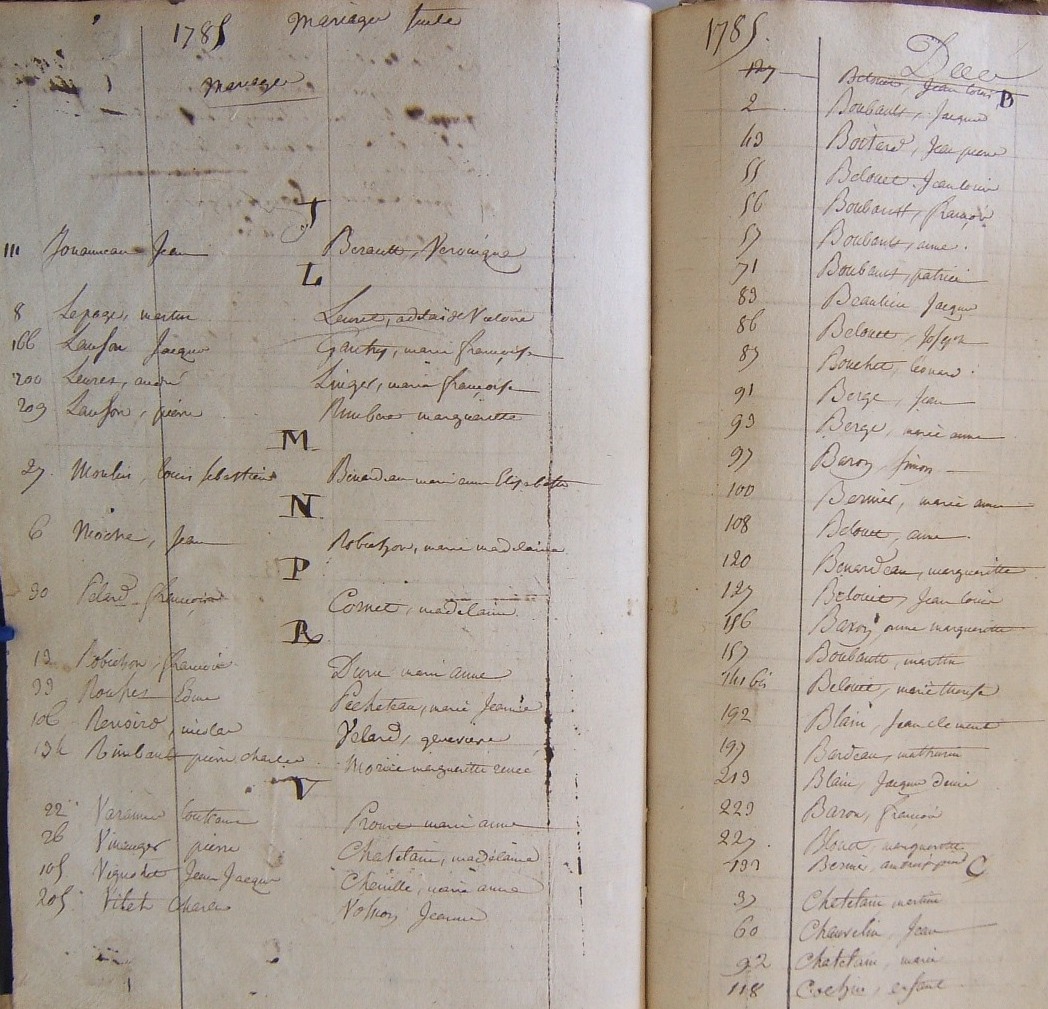 1785 Mariages suite
Mariages
J
111 Jouanneau Jean Berault, Veronique
L
8 Lepage, martin Leuret, adelaide Victoire
166 Lanson Jacque Gautry, marie françoise
200 Leuret, andré Linger, marie françoise
209 Lanson, pierre Rimbert margueritte
M
27. Moulin, louis sebastien Benardeau marie anne Elisabeth
N
6 Jean Robichon, marie madelaine
P
30 Pelard françois Cornet, madelaine
R
13 Robichon, françois marie anne
33 Rousses Edme Pecheteau, marie Jeanne
106 Renoird, nicolas Velard, genevieve
134 Rimbault pierre charles Morice margueritte renée
V
22 Varanne marie anne
26 Vinauger pierre Chatelain, madelaine
105 Jean Jacque Chenille, marie anne
205 Vilet Charles Jeanne
1785.
Dece
127 Belouet, Jean louis
B
2 Boubault, Jacque
43 Botard, Jean pierre
55 Belouet Jean louis
56 Boubault, françois
57 Boubault, anne.
71 Boubault, patrice
83 Beaulieu Jacque
86 Belouet, Joseph
87 Bouchet, leonard.
91 Berge, Jean
93 Berge, marie anne
97 Baron, simon
100 Bernier, marie anne
108 Belouet, anne.
120 Benardeau, margueritte
127 Belouet, Jean louis
156 Baron, anne margueritte
157 Boubault, martin
141 bis Belouet, marie therese
192 Blain, Jean clement
197 Bardeau, mathurin
213 Blain, Jacque denis
223 Baron, françois
227. Blouet, marguerite
133 Bernier,
C
37 Chatelain martin
60 Chauvelin, Jean
92 Chatelain, marie
118 enfant